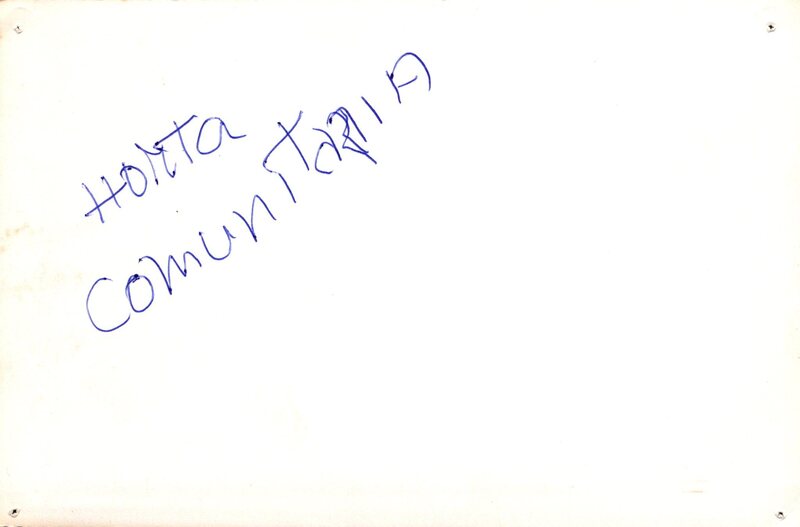 HORTA
COMUNITARIA